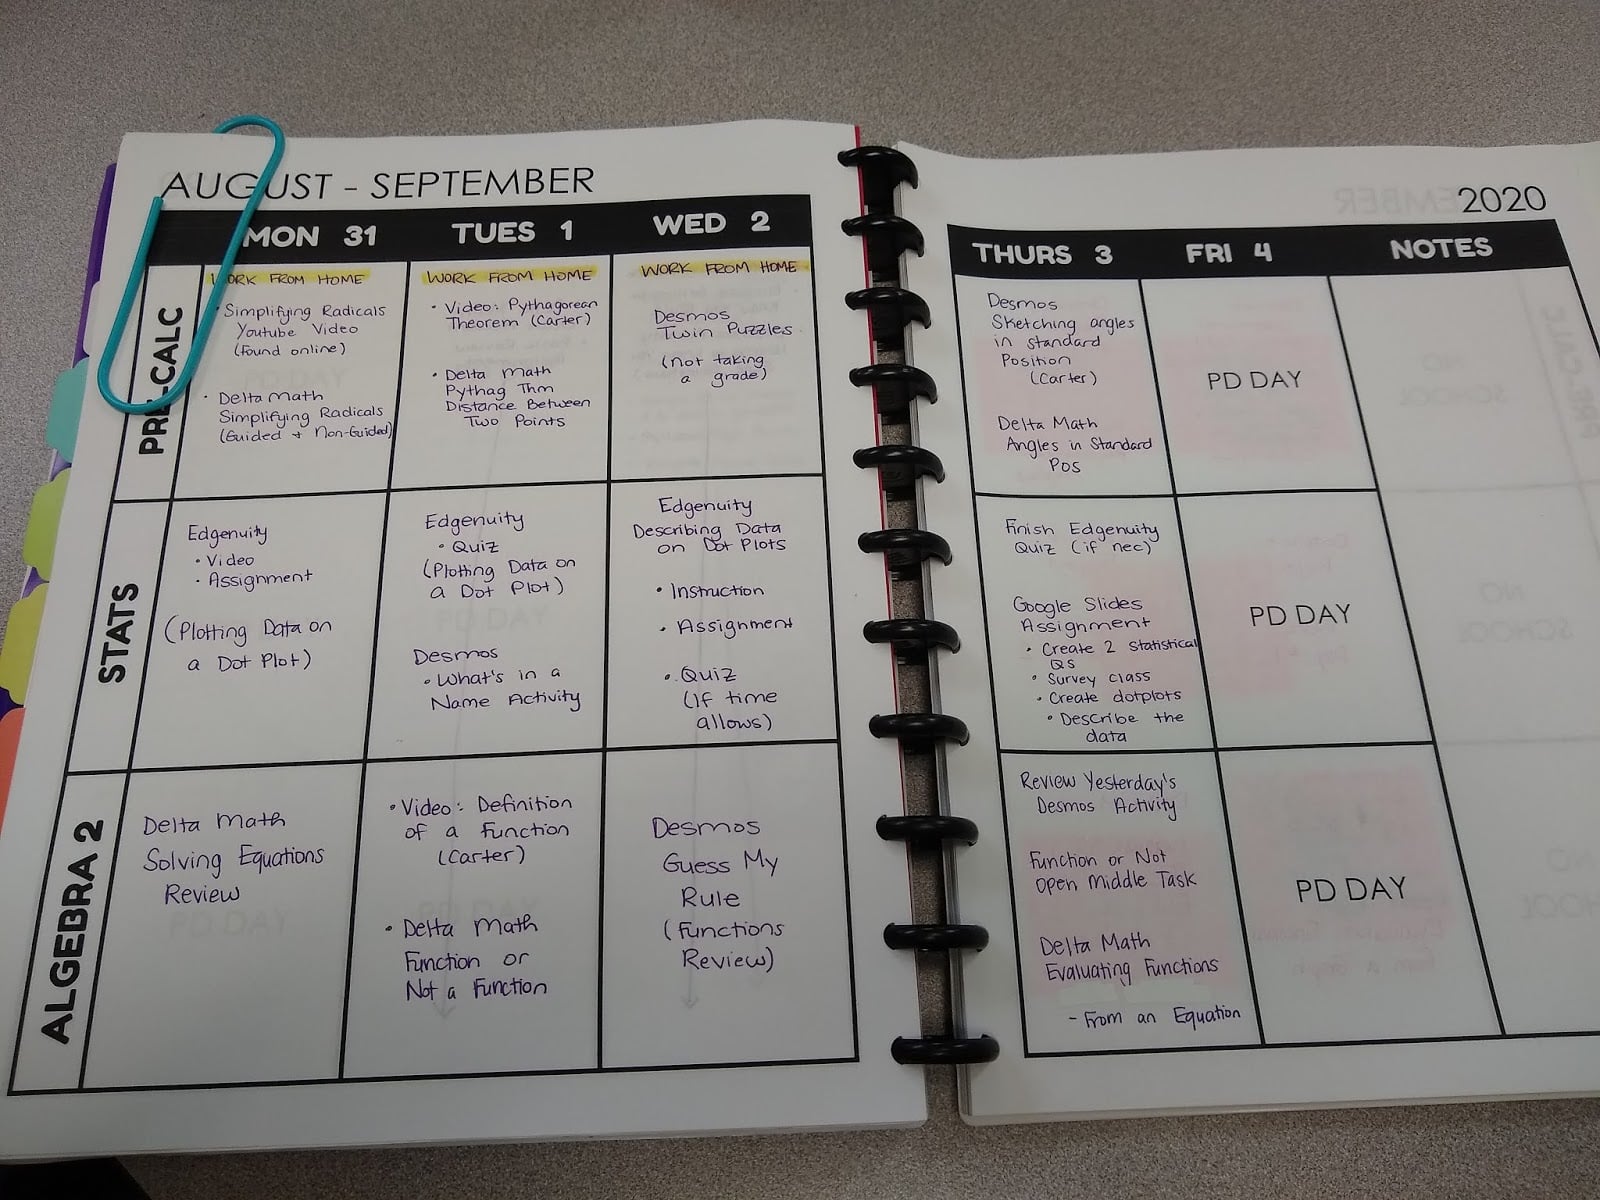 AUGUST - SEPTEMBER
2020
MON 31
TUES 1
WED 2
THURS 3
FRI 4
NOTES
PRE-CALC
WORK FROM HOME
• Simplifying Radicals
Youtube Video
(found online)
• Delta Math
Simplifying Radicals
(Guided + Non-Guided)
WORK FROM HOME
• Video: Pythagorean
Theorem (Carter)
• Delta Math
Pythag Thm
Distance Between
Two Points
WORK FROM HOME
Desmos
Twin Puzzles
(not taking
a grade)
Desmos
Sketching angles
in standard
Position
(Carter)
Delta Math
Angles in Standard
Pos
PD DAY
STATS
Edgenuity
• Video
• Assignment
(Plotting Data on
a Dot Plot)
Edgenuity
• Quiz
(Plotting Data on
a Dot Plot)
Desmos
• What's in a
Name Activity
Edgenuity
Describing Data
on Dot Plots
• Instruction
• Assignment
• Quiz
(If time
allows)
Finish Edgenuity
Quiz (if nec)
Google Slides
Assignment
• Create 2 Statistical
Qs
• Survey class
• Create dotplots
• Describe the
data
PD DAY
ALGEBRA 2
Delta Math
Solving Equations
Review
• Video: Definition
of a Function
(Carter)
• Delta Math
Function or
Not a Function
Desmos
Guess My
Rule
(Functions
Review)
Review Yesterday's
Desmos Activity
Function or Not
Open Middle Task
Delta Math
Evaluating Functions
- From an Equation
PD DAY